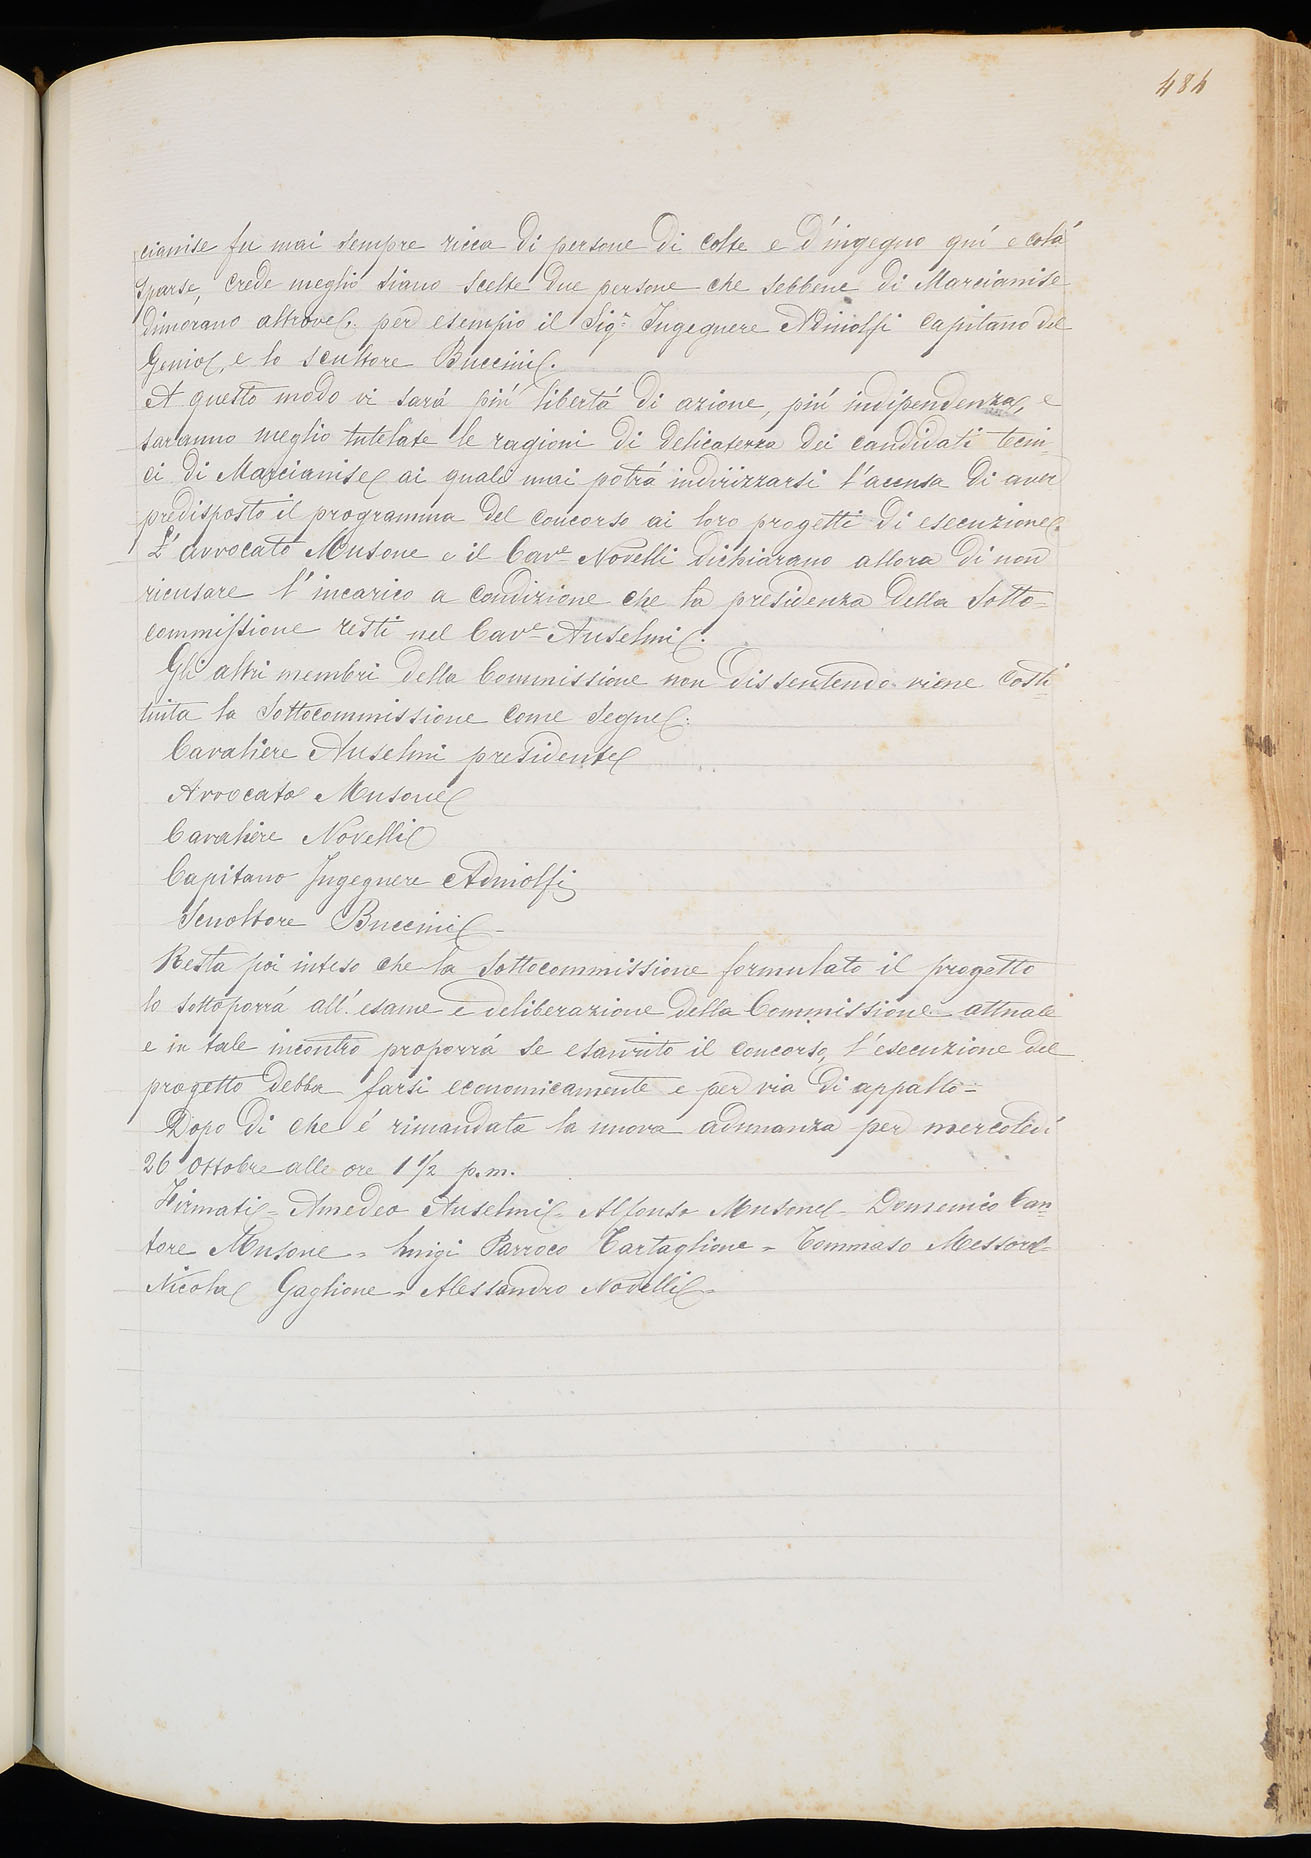 484
cianise fu mai sempre ricca di persone di colte e d'ingegno quí e colá
sparse, crede meglio siano scelte due persone che sebbene di Marcianise
dimorano altrove. per esempio il Sigr. Ingegnere Adinolfi capitano del
Genio, e lo scultore Buccini.
A questo modo vi sará piú libertá di azione, piú indipendenza, e
saranno meglio tutelate le ragioni di delicatezza dei candidati tecni-
ci di Marcianise ai quali mai potrá indirizzarsi l'accusa di aver
predisposto il programma del concorso ai loro progetti di esecuzione.
L'avvocato Musone e il Cave. Novelli dichiarano allora di non
ricusare l'incarico a condizione che la presidenza della Sotto=
commissione resti nel Cave. Anselmi.
Gli altri membri della Commissione non dissentendo viene costi-
tuita la Sottocommissione come segue:
Cavaliere Anselmi presidente
Avvocato Musone
Cavaliere Novelli
Capitano Ingegnere Adinolfi
Scuoltore Buccini -
Resta poi inteso che la Sottocommissione formulato il progetto
lo sottoporrá all'esame e deliberazione della Commissione attuale
e in tale incontro proporrá se esaurito il concorso, l'esecuzione del
progetto debba farsi economicamente e per via di appalto=
Dopo di che é rimandata la nuova adunanza per mercoledí
26 Ottobre alle ore 1 1/2 p.m.
Firmati= Amedeo Anselmi= Alfonso Musone= Domenico Can=
tore Musone = Luigi Parroco Tartaglione = Tommaso Messore=
Nicola Gaglione = Alessandro Novelli=